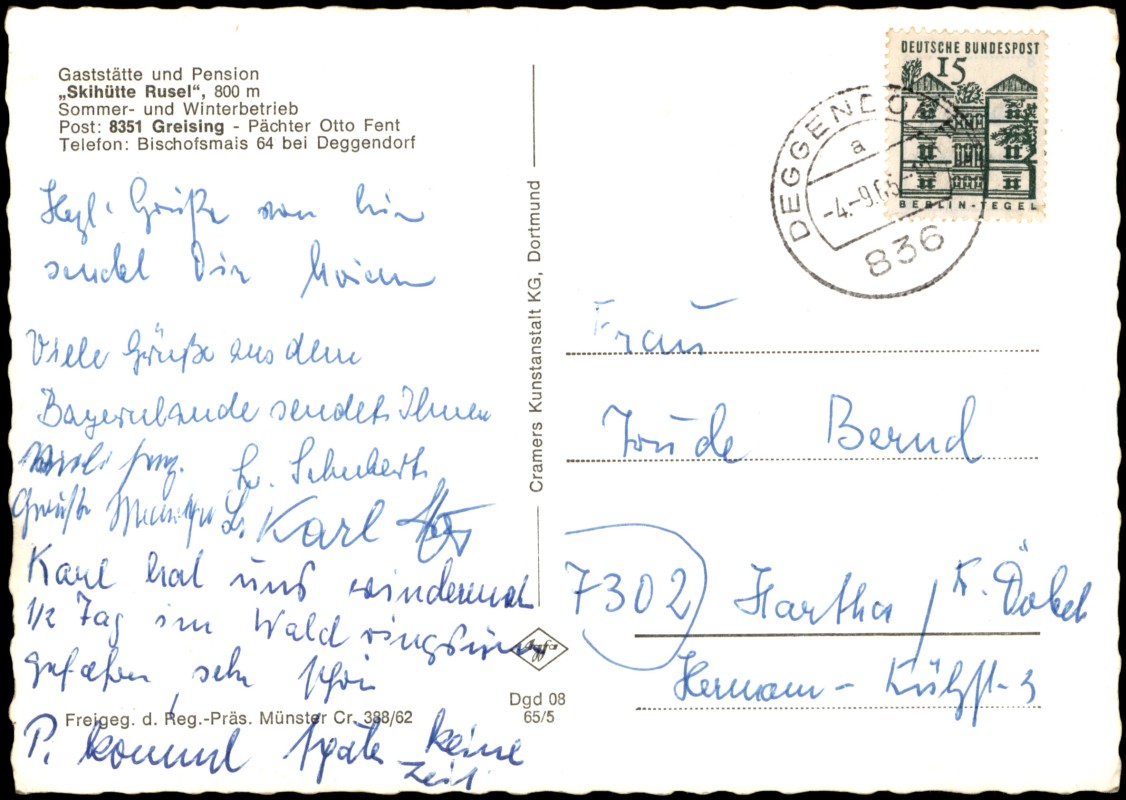 Gaststätte und Pension
„Skihütte Rusel“, 800 m
Sommer- und Winterbetrieb
Post: 8351 Greising - Pächter Otto Fent
Telefon: Bischofsmais 64 bei Deggendorf
Hzl. Grüße von hier
sendet Dir
Viele Grüße aus dem
Bayernlande sendet Ihnen
Schubert
Grüße
Karl
Karl hat uns
1/2 Tag im Wald
gefahren, sehr schön
P. kommt später keine
Zeit
Freigeg. d. Reg.-Präs. Münster Cr. 388/62
Cramers Kunstanstalt KG, Dortmund
Agfa
Dgd 08
65/5
DEUTSCHE BUNDESPOST
15
BERLIN-TEGEL
DEGGENDO
a
-4.-9.65
836
Frau
Trude Bernd
7302 Hartha / K. Döbeln
Hermann-